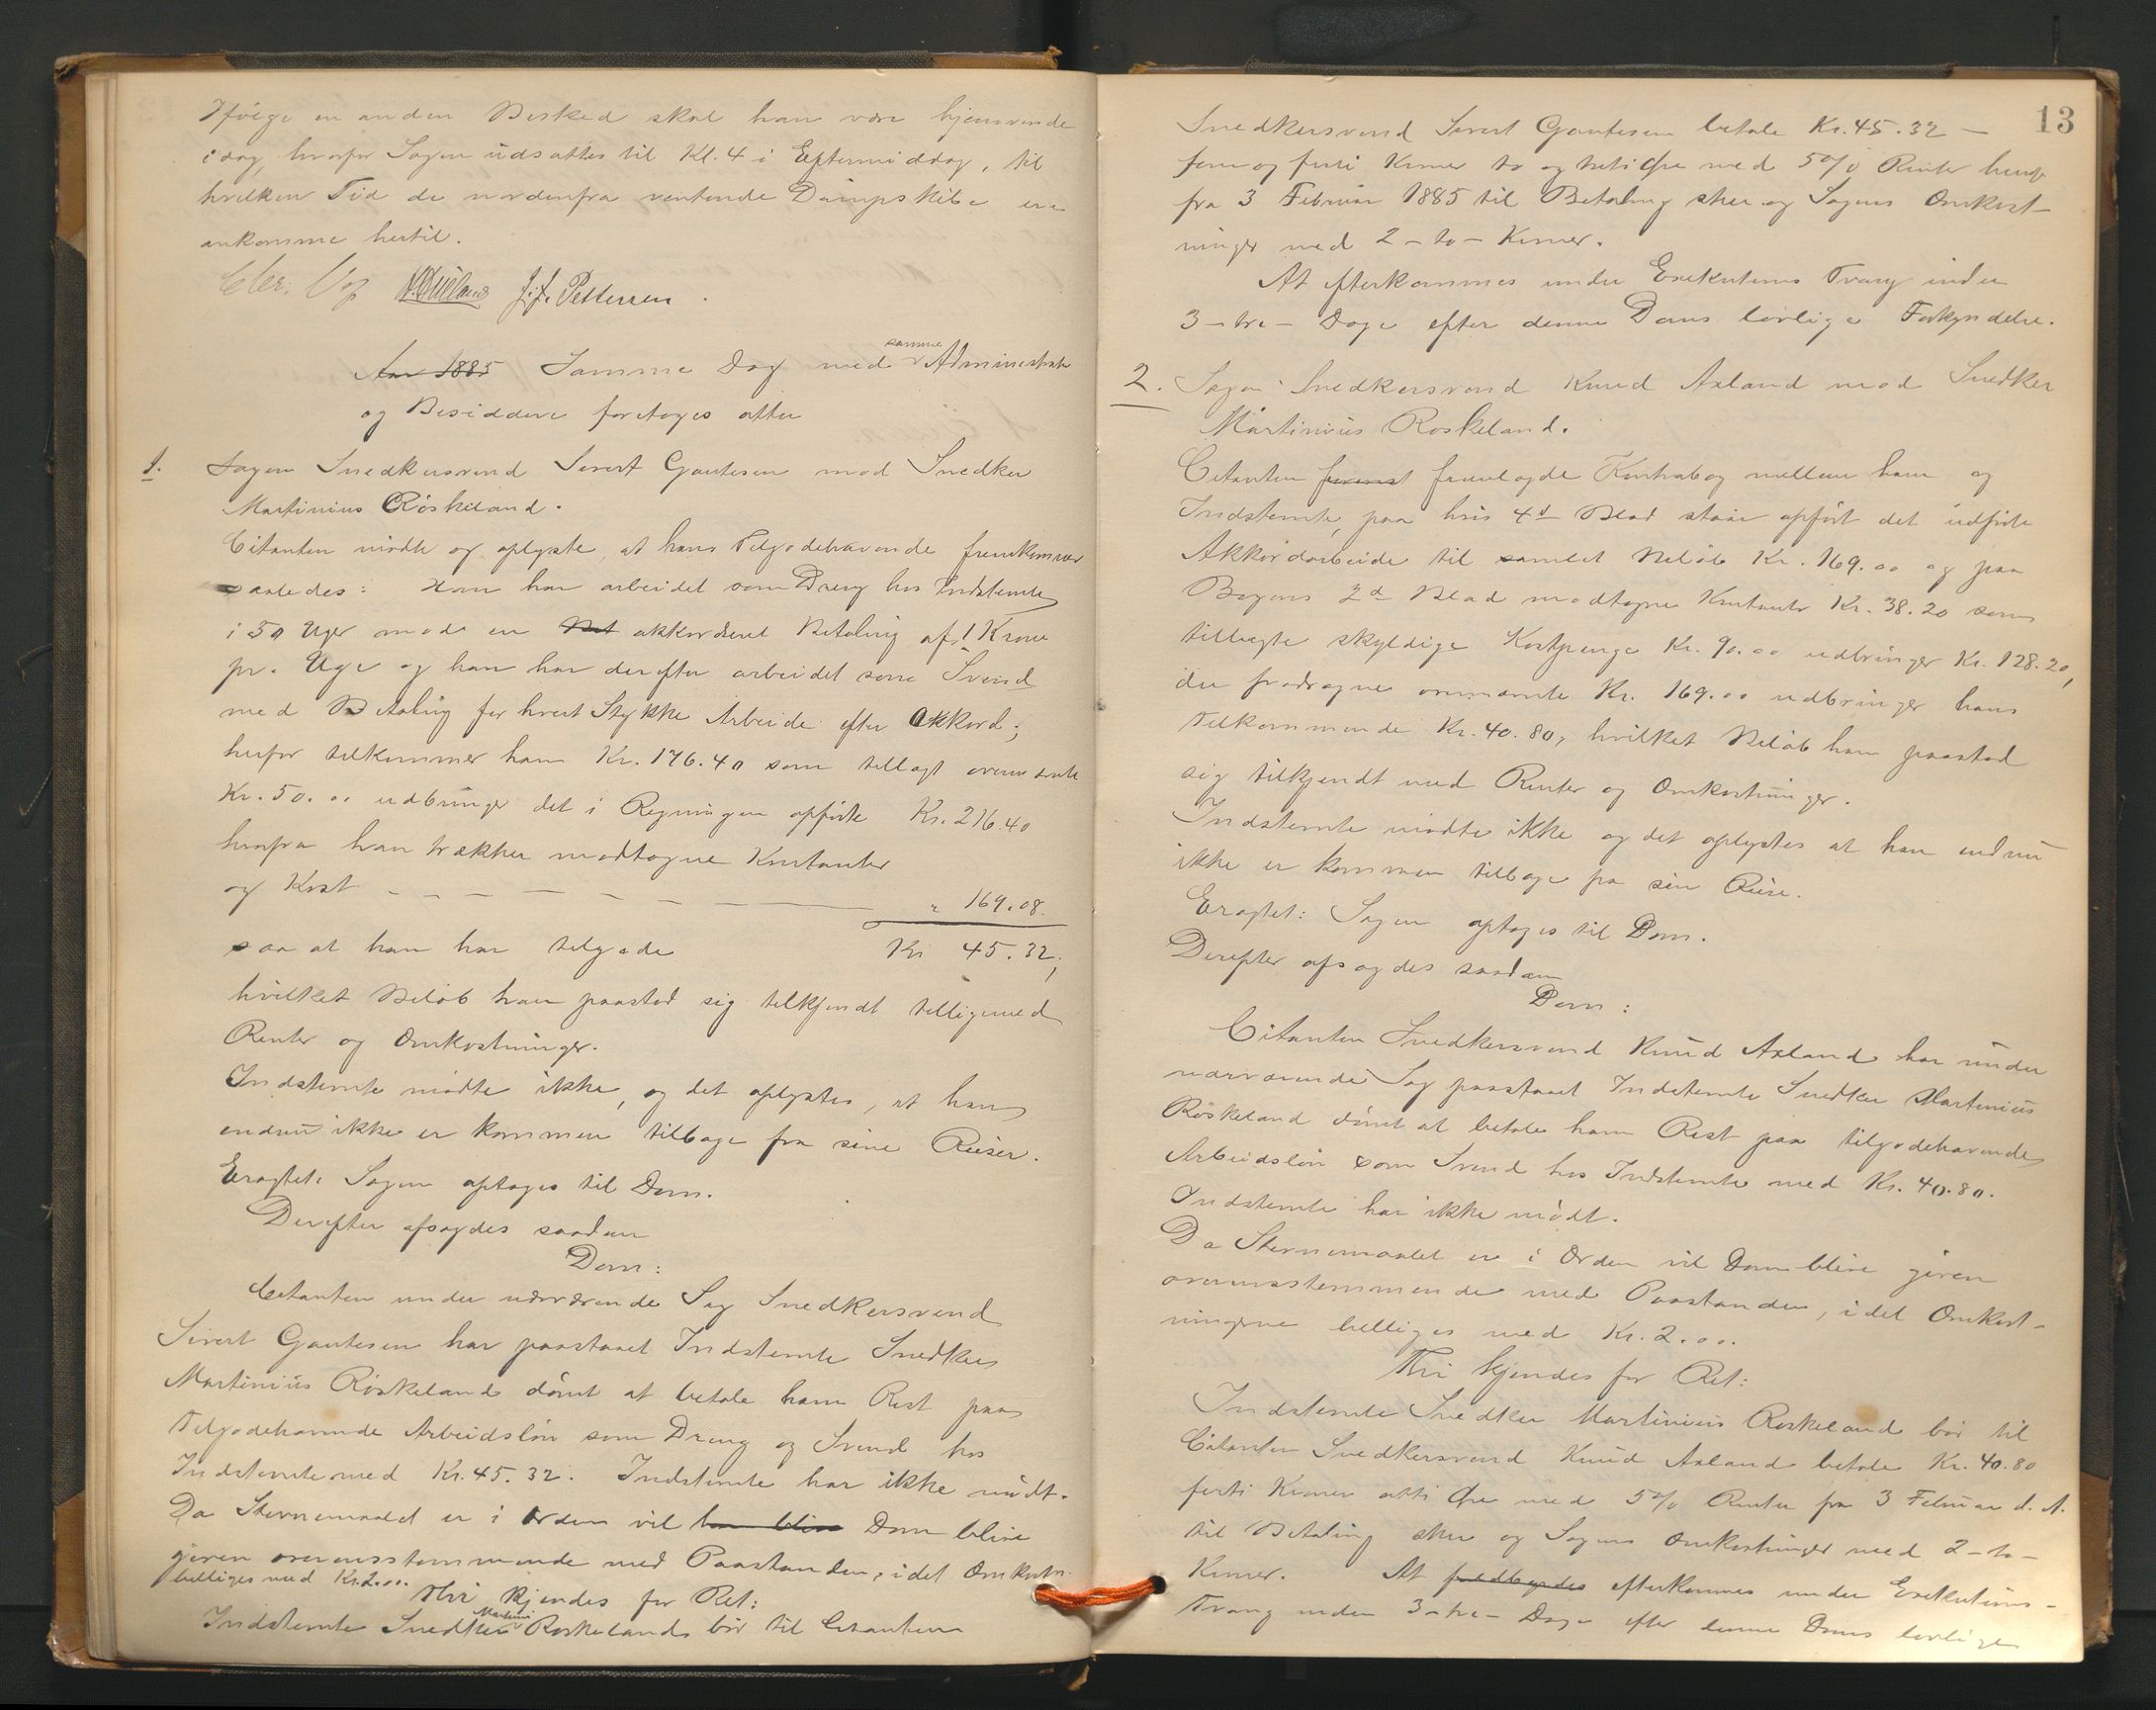 Ifølge en anden Besked skal han være hjemvendende
idag, hvorfor Sagen udsattes til Kl. 4 i Eftermiddag, til
hvilken Tid de nordenfra ventende Dampskibe ere
ankomne hertil.
J. J. Pettersen.
Aar 1885 Samme Dag med samme Administrator
og Besiddere foretoges atter
1. Sagen Snedkersvend Sivert Gautesen mod Snedker
Martinius Röskeland.
Citanten mödte og oplyste, at hans Tilgodehavende fremkommer
saaledes: Han har arbeidet som Dreng hos Indstemte
i 50 Uger mod en akkorderet Betaling af 1 Krone
pr. Uge og han har derefter arbeidet som Svend
med Betaling for hvert Stykke Arbeide efter Akkord;
herfor tilkommer ham Kr. 176.40 som tillagt ovennævnte
Kr. 50.00 udbringer det i Regningen opførte Kr. 216.40
hvorfra han trækker modtagne Kontanter
og Kost - - - - - - - " 169.08.
saa at han har tilgode Kr 45.32,
hvilket Beløb han paastod sig tilkjendt tilligemed
Renter og Omkostninger.
Indstemte mödte ikke, og det oplystes, at han
endnu ikke er kommen tilbage fra sine Reiser.
Eragtet: Sagen optages til Dom.
Derefter afsagdes saadan
Dom:
Citanten under nærværende Sag Snedkersvend
Sivert Gautesen har paastaaet Indstemte Snedker
Martinius Röskeland dömt at betale ham Rest paa
Tilgodehavende Arbeidslön som Dreng og Svend hos
Indstemte med Kr. 45.32. Indstemte har ikke mödt.
Da Stevnemaalet er i Orden vil han blive Dom blive
given overensstemmende med Paastanden, idet Omkostn.
billiges med Kr. 2.00.
Thi kjendes for Ret:
Indstemte Snedker Martini Roskeland bör til Citanten
13
Snedkersvend Sivert Gautesen betale Kr. 45.32 —
fem og firti Kroner to og treti Øre med 5% Renter
fra 3 Februar 1885 til Betaling sker og Sagens Omkost-
ninger med 2 - to - Kroner.
At efterkommes under Exekutions Tvang inden
3 - tre - Dage efter denne Doms lovlige Forkyndelse.
2. Sagen Snedkersvend Knud Axland mod Snedker
Martinius Roskeland.
Citanten fremlagde Kontrabog mellem ham og
Indstemte, paa hvis 4d Blad staar opfört det udförte
Akkordarbeide til samlet Belöb Kr. 169.00 og paa
Bogens 2d Blad modtagne Kontanter Kr. 38.20 som
tillagte skyldige Kostpenge Kr. 90.00 udbringer Kr. 128.20,
der fradragne ovennævnte Kr. 169.00 udbringer hans
Tilkommende Kr. 40.80, hvilket Belöb han paastod
sig tilkjendt med Renter og Omkostninger.
Indstemte mödte ikke og det oplystes at han endnu
ikke er kommen tilbage fra sin Reise.
Eragtet: Sagen optages til Dom.
Derefter afsagdes saadan
Dom:
Citanten Snedkersvend Knud Axland har under
nærværende Sag paastaaet Indstemte Snedker Martinius
Röskeland dömt at betale ham Rest paa tilgodehavende
Arbeidslön som Svend hos Indstemte med Kr. 40.80.
Indstemte har ikke mödt.
Da Stevnemaalet er i Orden vil Dom blive given
overensstemmende med Paastanden, idet Omkost-
ningerne billiges med Kr. 2.00.
Thi kjendes for Ret:
Indstemte Snedker Martinius Roskeland bör til
Citanten Snedkersvend Knud Axland betale Kr. 40.80
forti Kroner otti Øre med 5% Renter fra 3 Februar d. A.
til Betaling sker og Sagens Omkostninger med 2 - to -
Kroner. At fuldbyrdes efterkommes under Exekutions-
Tvang inden 3 - tre - Dage efter denne Doms lovlige